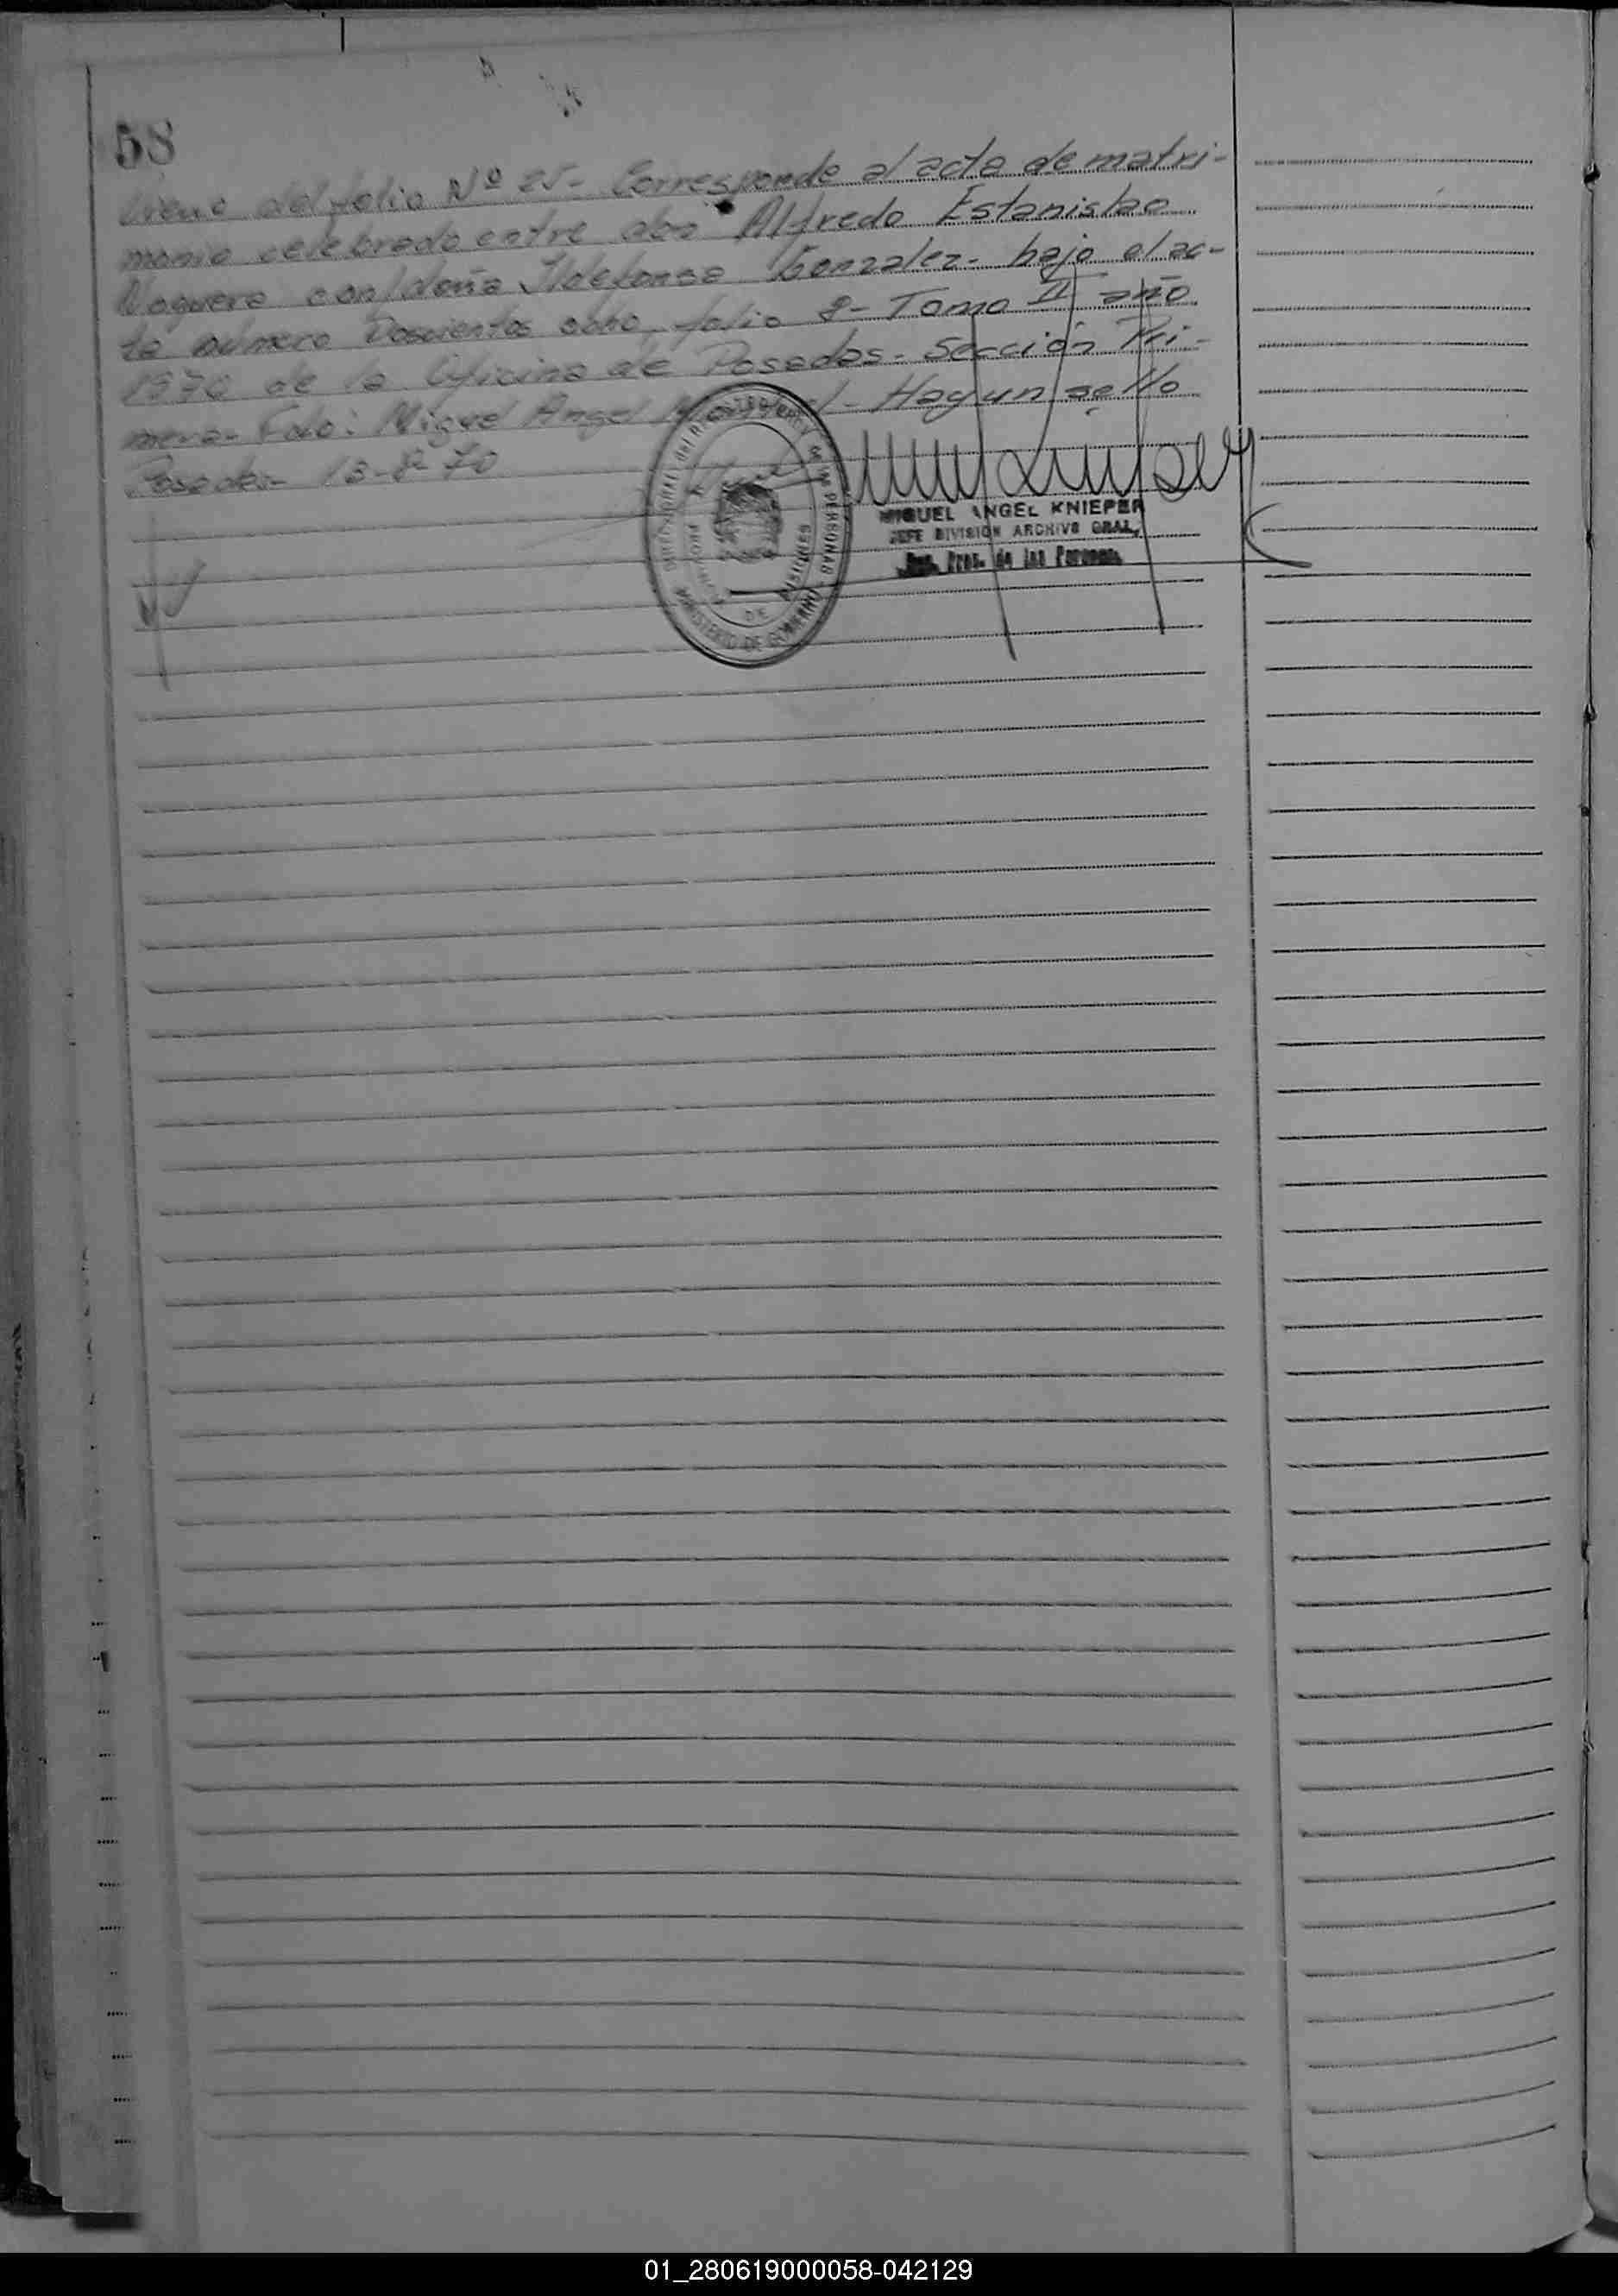 58
Viene del folio Nº 25- Corresponde al acta de matri-
monio celebrado entre don Alfredo Estanislao
Noguera con doña Ildefonsa Gonzalez- bajo el ac-
ta número Doscientos ocho, folio 8- Tomo II año
1970 de la Oficina de Posadas- Sección Pri-
mera- Fdo: Miguel Angel - Hay un sello
Posadas- 13-8-70
MIGUEL ANGEL KNIEPER
JEFE DIVISION ARCHIVO GRAL.
Prov. de las Personas
DE LAS PERSONAS
MINISTERIO DE GOBIERNO
PROVINCIA DE MISIONES
01_280619000058-042129